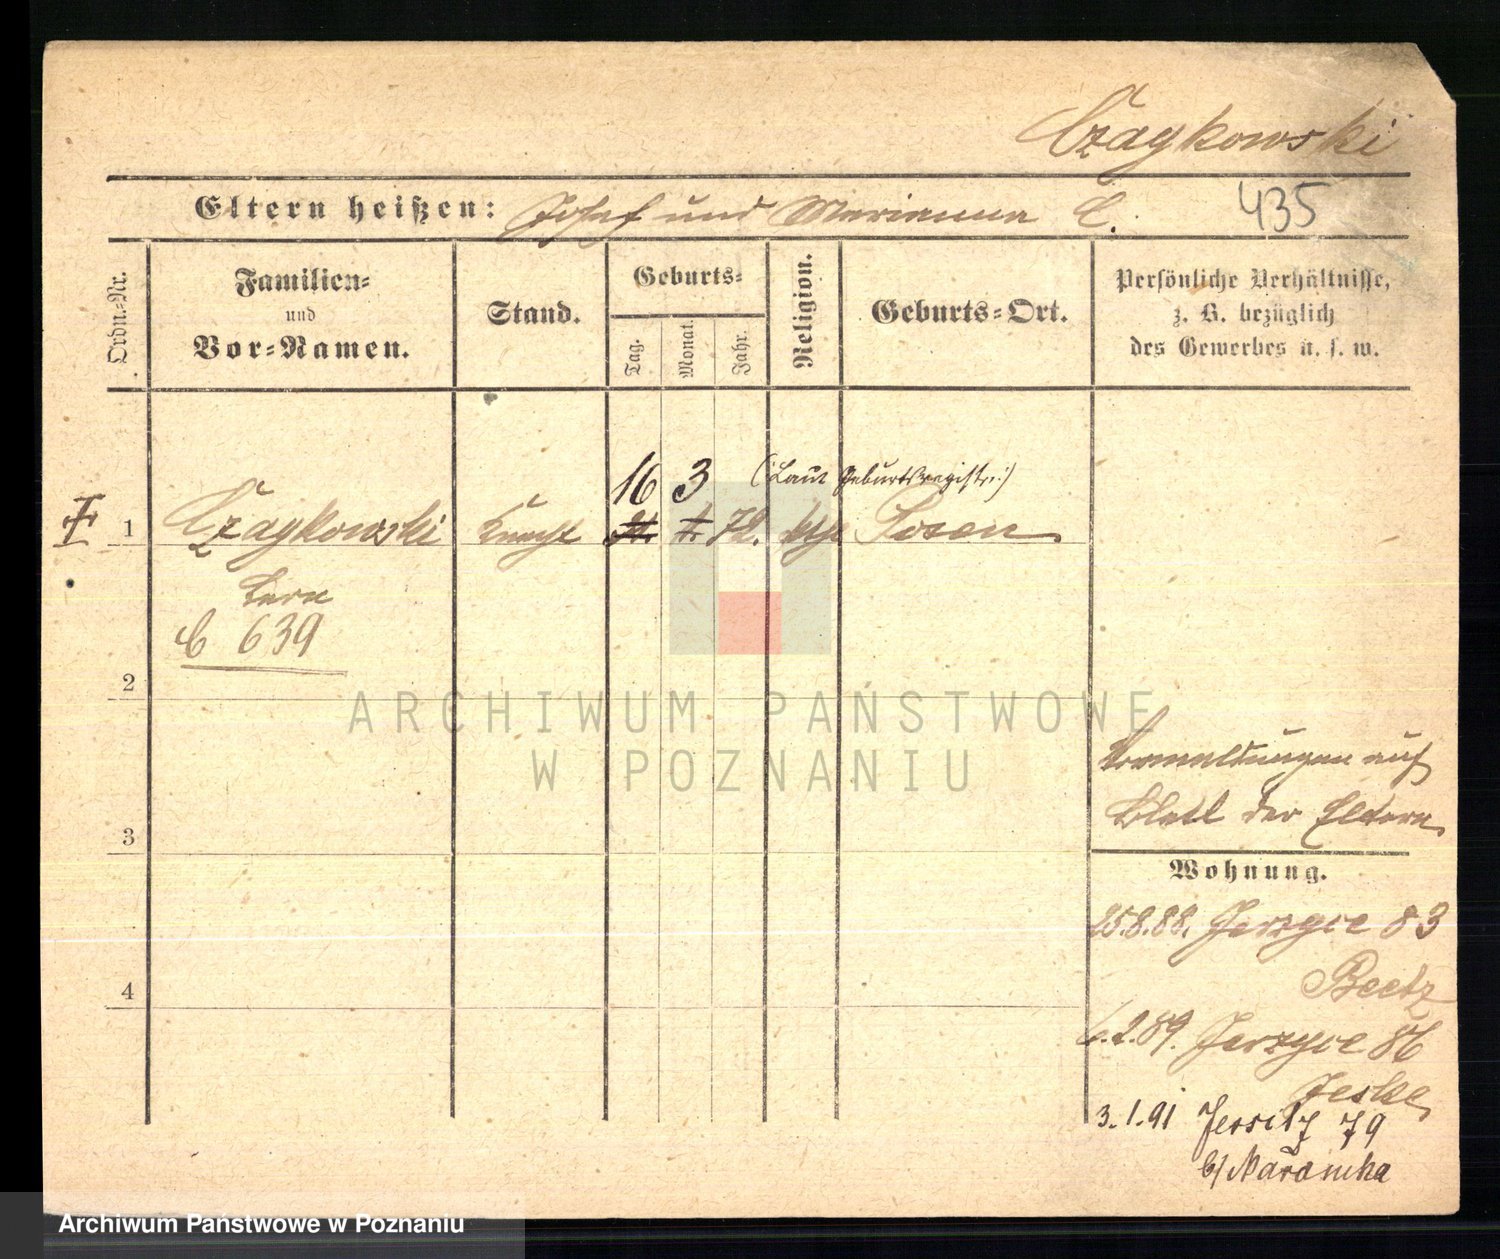 Czaykowski
Eltern heißen: Josef und Marianna C.
435
Ordn.-Nr.
Familien-
und
Vor-Namen.
Stand.
Geburts-
Tag.
Monat.
Jahr.
Religion.
Geburts-Ort.
Persönliche Verhältnisse,
z. B. bezüglich
des Gewerbes u. s. w.
16 3 (:Laut Geburtsregister:)
1 Czaykowski Knecht 72. kth Posen
C 639
2
Anmeldungen auf
Blatt der Eltern
3
Wohnung.
25.8.88. Jerzyce 83
Beetz
4
6.2.89. Jerzyce 86
Jeske
3.1.91 Jersitz 79
b/ Maramha
ARCHIWUM PAŃSTWOWE
W POZNANIU
Archiwum Państwowe w Poznaniu